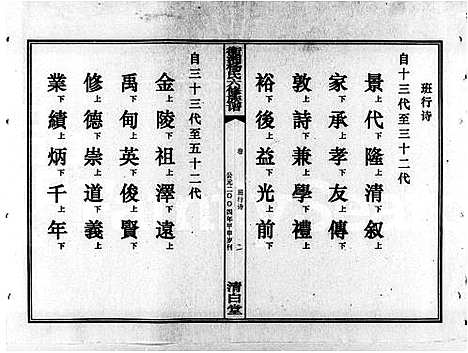 班行诗
自十三代至三十二代
景上代上隆上清上叙上
家下承下孝下友下傳下
敦上詩上兼上學上禮上
裕下後下益下光下前下
氏六修族谱
卷 班行诗 二
公元二〇〇四年甲申岁刊
清白堂
自三十三代至五十二代
金上陵上祖上澤上遠上
禹下甸下英下俊下賢下
修上德上崇上道上義上
業下績下炳下千下年下